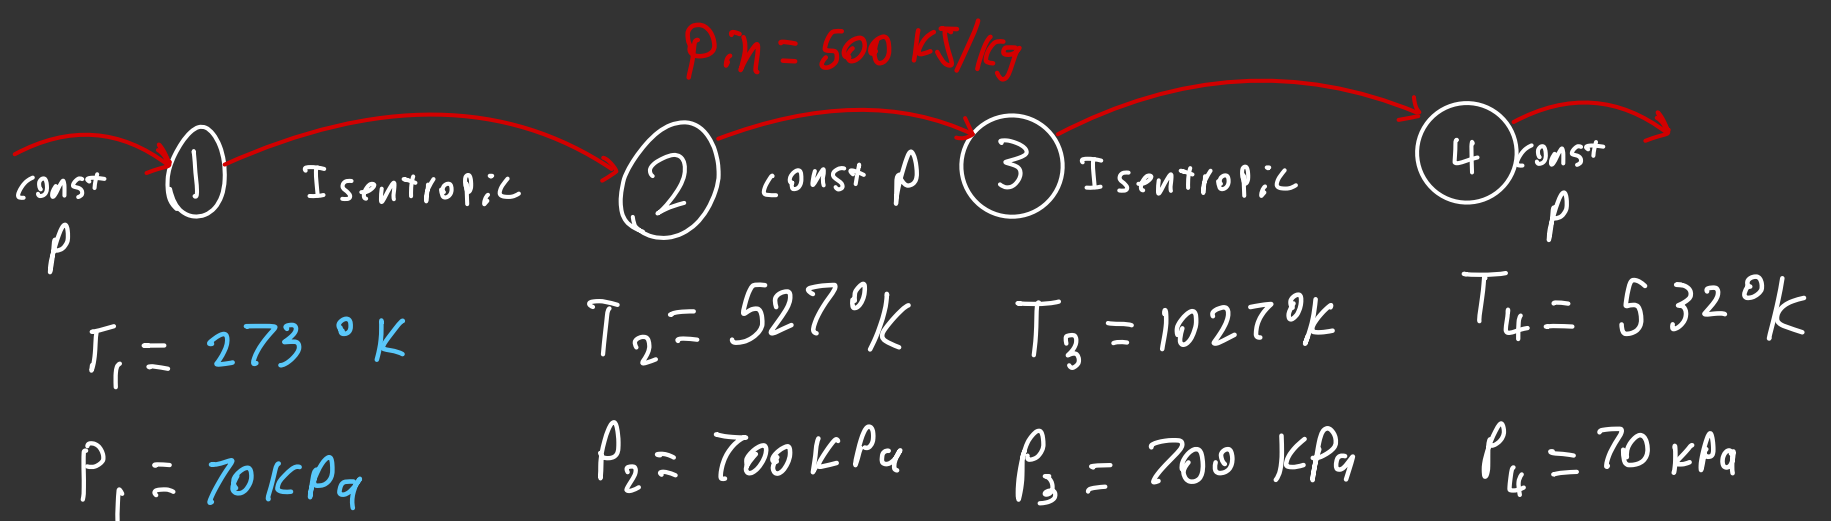 Pin = 500 KJ/Kg
const P 1 Isentropic 2 const P 3 Isentropic 4 const P
T1 = 273 °K T2 = 527 °K T3 = 1027 °K T4 = 532 °K
P1 = 70 KPa P2 = 700 KPa P3 = 700 KPa P4 = 70 KPa